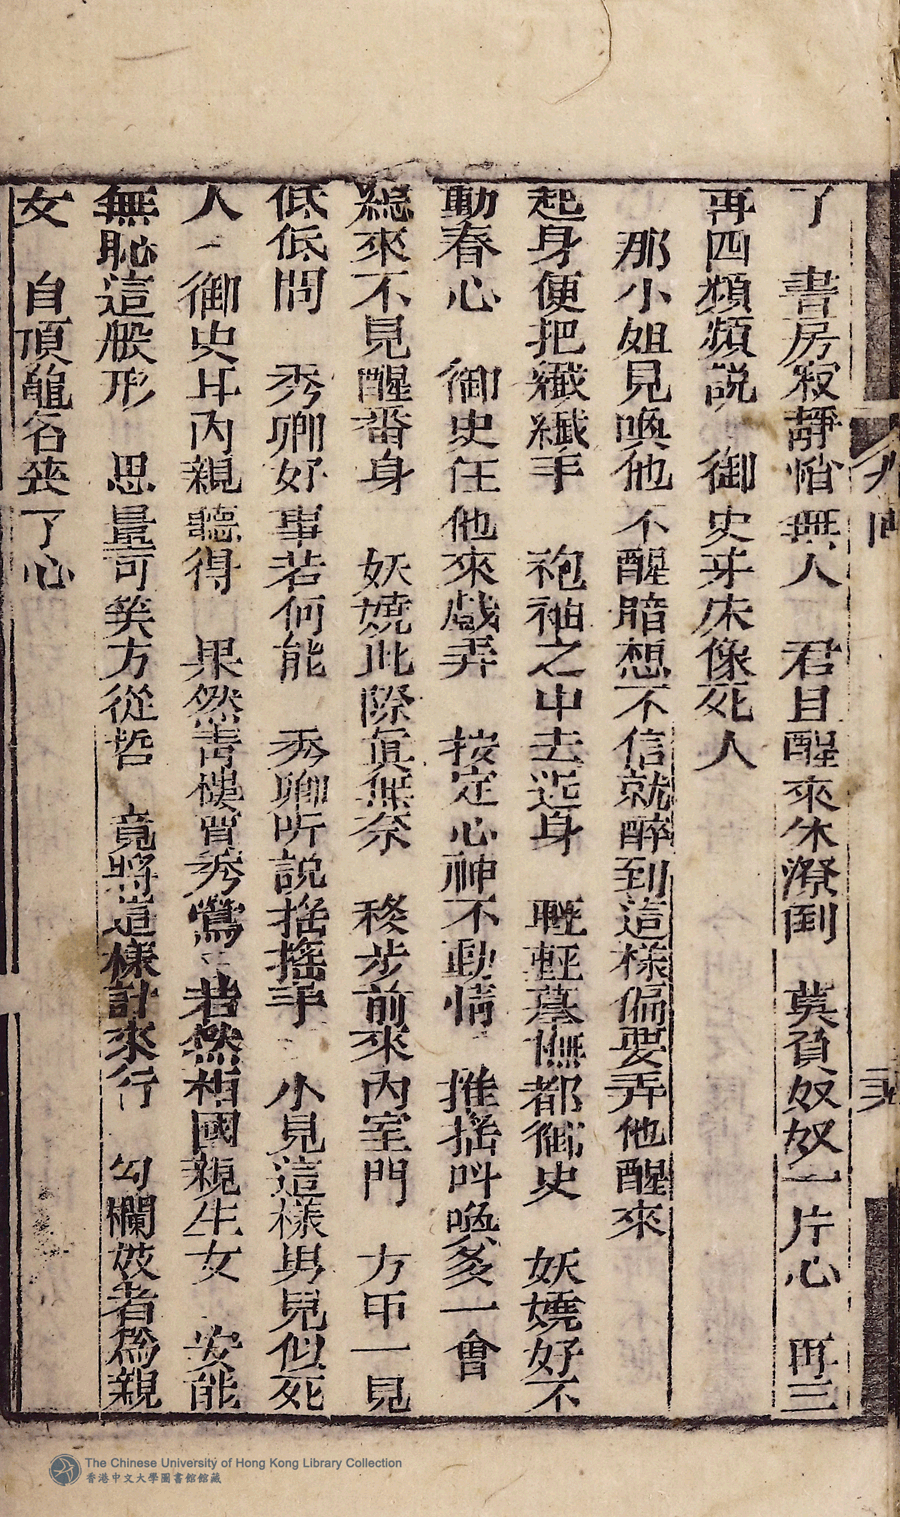 了　書房寂靜悄無人　君且醒來休潦倒　莫負奴奴一片心　再三
再四頻頻說　御史牙床像死人
那小姐見喚他不醒暗想不信就醉到這樣偏要弄他醒來
起身便把纖纖手　袍袖之中去近身　輕輕摹撫都御史　妖嬈好不
動春心　御史任他來戲弄　按定心神不動情　推搖呌喚多一會
總來不見醒番身　妖嬈此際眞無奈　移步前來內室門　方中一見
低低問　秀卿好事若何能　秀卿听說搖搖手　小見這樣男兒似死
人　御史耳內親聽得　果然青樓賈秀鶯　若然相國親生女　安能
無恥這般形　思量可笑方從哲　竟將這樣計來行　勾欄妓者爲親
女　自頂龍名丧了心
九回
The Chinese University of Hong Kong Library Collection
香港中文大學圖書館館藏